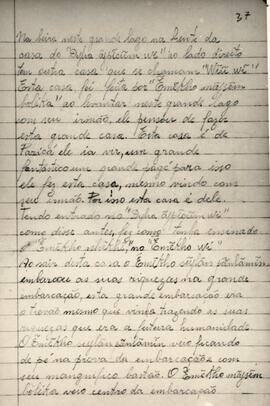 37
Na beira neste grande lago na frente da
casa do "Dʉhʉ ao lado direito
em outra casa que se chamam "Wii"
Esta casa foi feita por "Emëkho mahsãm
bolita" ao levantar neste grande lago
com seu irmão, ele pensou de fazer
esta grande casa. Esta casa é de
Paricá ele ia ver, um grande
fantástico um grande pagé para isso
ele fez esta casa, mesmo vindo com
seu irmão. Por isso esta casa é dele.
Tendo entrado no
como disse antes, fez como tenha ensinado
o "Emëkho no "Emëkho wi"
Ao sair desta casa o Emëkho
embarcou as suas riquezas na grande
embarcação, esta grande embarcação era
o trovão mesmo que vinha trazendo as suas
riquezas que era a futura humanidade
O Emëkho veio ficando
de pé na prova da embarcação e com
seu mangnifico bastão. O Emëkho
bolita veio centro da embarcação